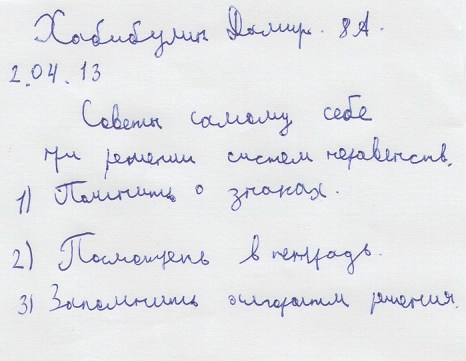 Хабибулин Дамир. 8А.
2.04.13
Советы самому себе
при решении систем неравенств.
1) Помнить о знаках.
2) Посмотреть в тетрадь.
3) Запомнить алгоритм решения.